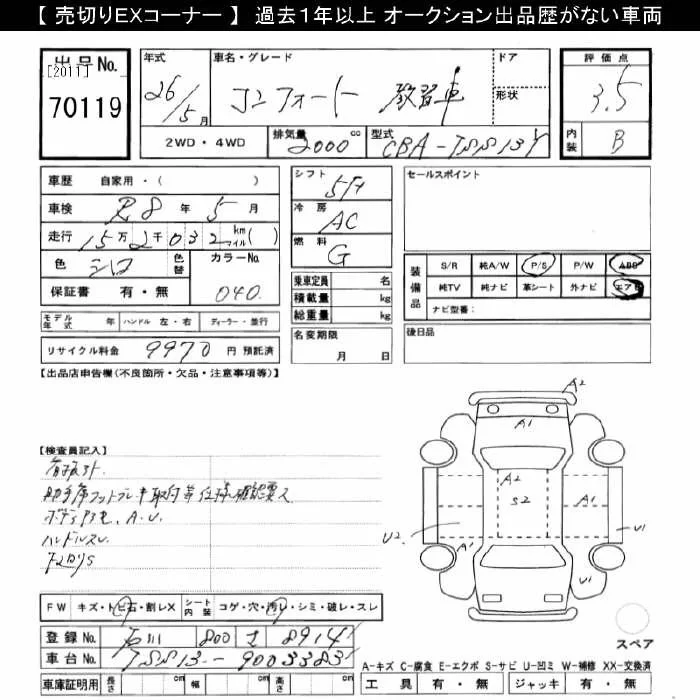 【 売切りEXコーナー 】 過去1年以上 オークション出品歴がない車両
出品 No.
[2011]
70119
年式 26/5月
車名・グレード コンフォート 教習車
ドア
形状
2WD・4WD
排気量 2000 cc
型式 CBA-TSS13Y
評価点 3.5
内装 B
車歴 自家用・( )
車検 R8年5月
走行 15万2千032 km マイル( )
色 シロ 色替 カラーNo. 040
保証書 有・無
シフト 5F
冷房 AC
燃料 G
乗車定員 名
積載量 kg
総重量 kg
セールスポイント
装備品
S/R 純A/W P/S P/W ABS
純TV 純ナビ 革シート 外ナビ エアB
ナビ型番:
モデル年式 年 ハンドル 左・右 ディーラー・並行
リサイクル料金 9970 円 預託済
名変期限 月 日
後日品
【出品店申告欄(不良箇所・欠品・注意事項等)】
【検査員記入】
助手席フットブレーキ取付等仕様確認要ス
A.U.
ハンドルスレ
A2
A1
A2
S2
A1
U2
A1
U1
U1
FW キズ・トビ石・割レX シート内装 コゲ・穴・汚レ・シミ・破レ・スレ
登録 No. 石川 800 さ 8914
車台 No. TSS13-9003383
車庫証明用 長さ cm 幅 cm 高さ cm
スペア
A-キズ C-腐食 E-エクボ S-サビ U-凹ミ W-補修 XX-交換済
工具 有・無 ジャッキ 有・無